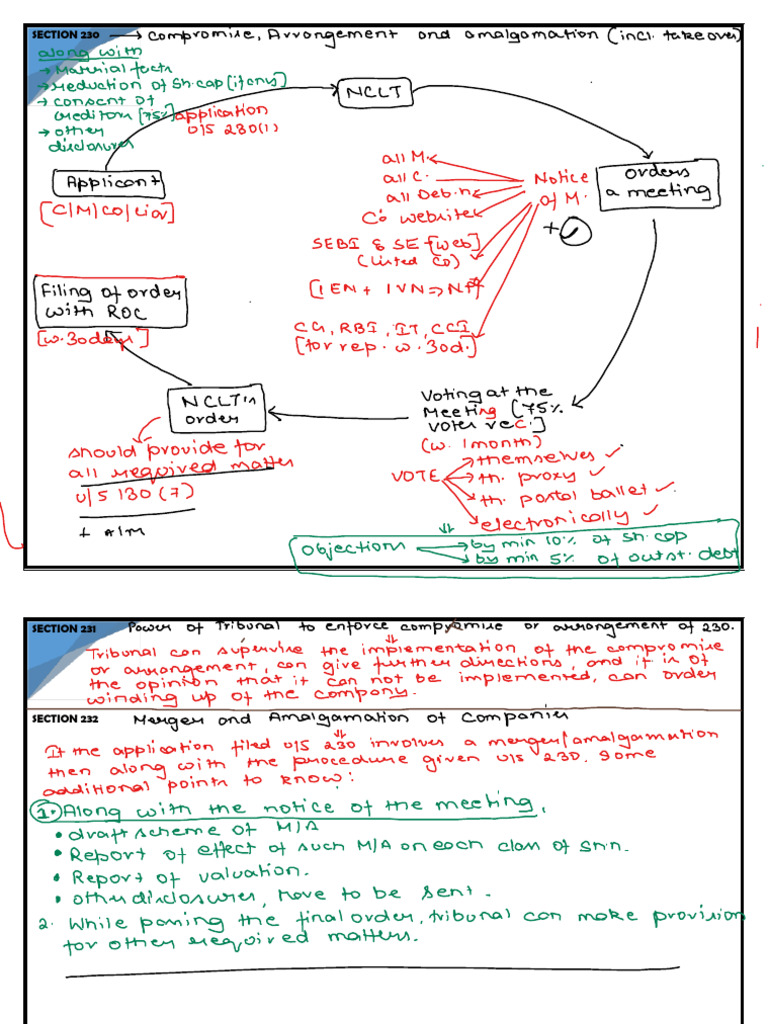 SECTION 230 → Compromise, Arrangement and amalgamation (incl. takeover)
along with
→ Material facts
→ reduction of Sh. cap [if any]
→ consent of
creditors [75%]
→ other
disclosures
application
U/S 230(1)
NCLT
Applicant
[C/M/CO/Liq]
orders
a meeting
Notice
of M.
+
all M.
all C.
all Deb. n
Co website
SEBI & SE [web]
(listed CO)
[1 EN + 1 VN ⇒ NP]
CG, RBI, IT, CCI
[for rep. w. 30d.]
Filing of order
with ROC
[w. 30days]
NCLT's
order
Voting at the
Meeting [75%
votes rec.]
(w. 1 month)
should provide for
all required matters
U/S 130 (7)
+ AIM
VOTE
themselves ✓
th. proxy ✓
th. postal ballet ✓
electronically ✓
Objections
by min 10% of sh. cap
by min 5% of outst. debt
SECTION 231 Power of Tribunal to enforce compromise or arrangement of 230.
Tribunal can supervise the implementation of the compromise
or arrangement, can give further directions, and if is of
the opinion that it can not be implemented, can order
winding up of the company.
SECTION 232 Merger and Amalgamation of Companies
If the application filed U/S 230 involves a merger/amalgamation
then along with the procedure given U/S 230. Some
additional points to know:
1. Along with the notice of the meeting,
• draft scheme of M/A
• Report of effect of such M/A on each class of sh.n.
• Report of valuation.
• other disclosures, have to be sent.
2. While passing the final order, tribunal can make provision
for other required matters.